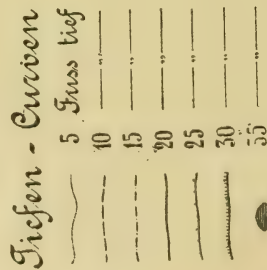 Tiefen - Curven
5 Fuss tief
10 — " —
15 — " —
20 — " —
25 — " —
30 — " —
35 — " —